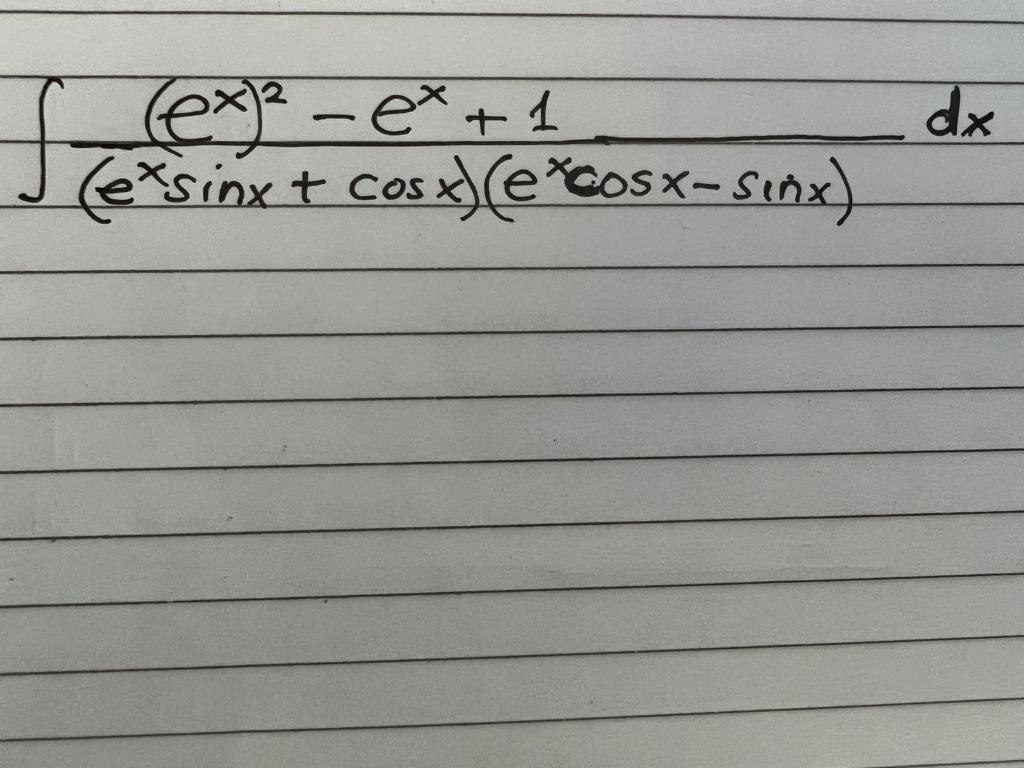 ∫ \frac{(e^x)^2 - e^x + 1}{(e^x sinx + cosx)(e^x cosx - sinx)} dx